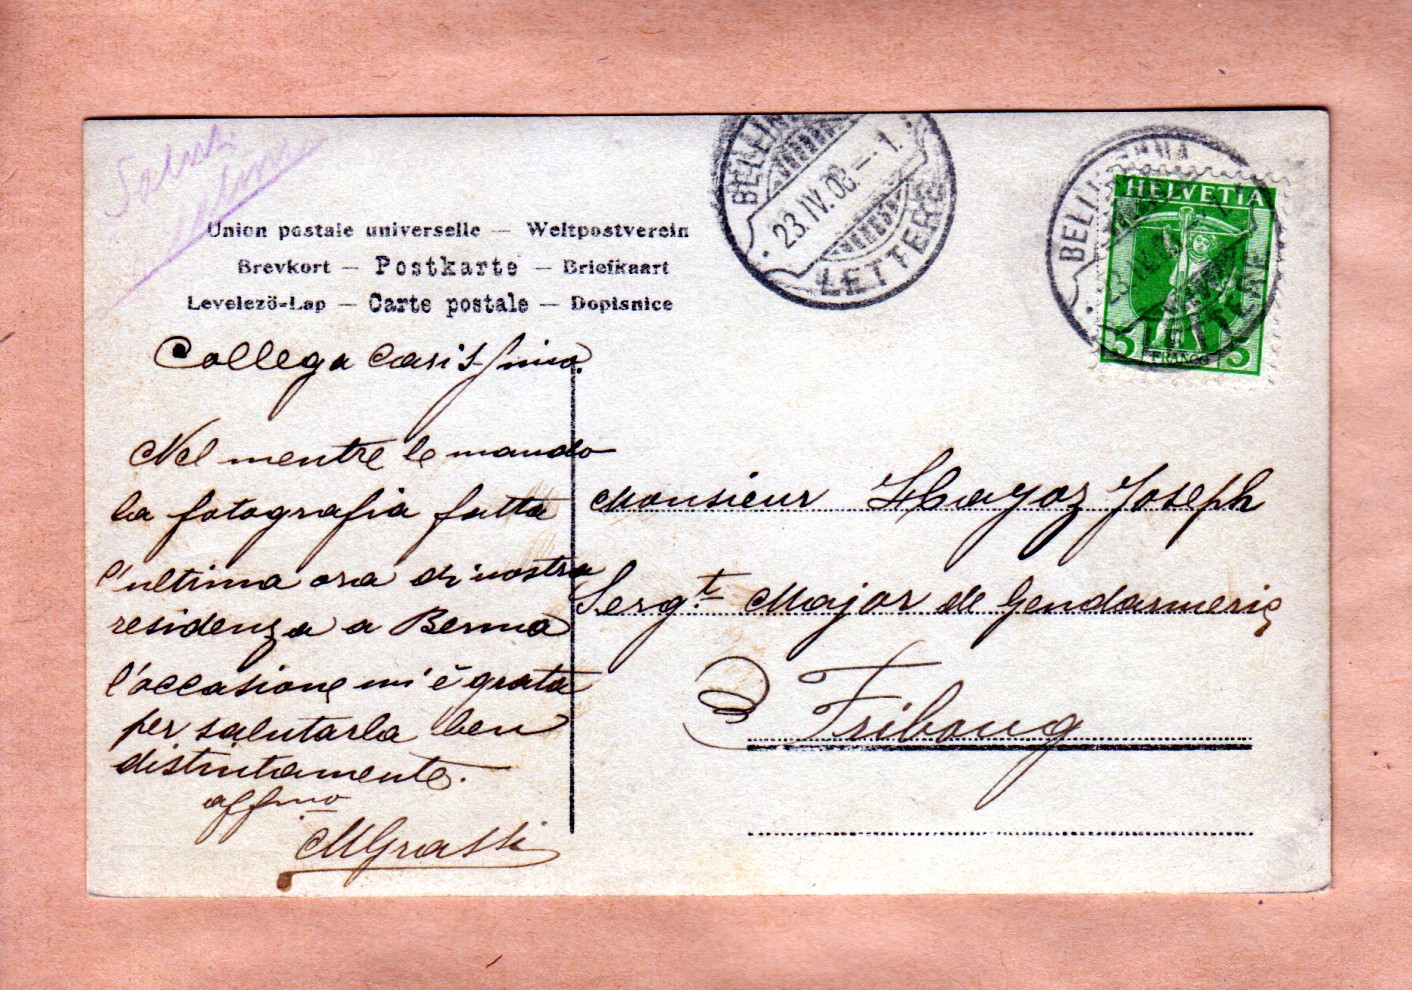 Saluti
Union postale universelle — Weltpostverein
Brevkort — Postkarte — Briefkaart
Levelező-Lap — Carte postale — Dopisnice
BELLINZONA
23.IV.08.–1.
LETTERE
BELLINZONA
LETTERE
HELVETIA
5 FRANCO 5
Collega Carissimo.
Nel mentre le mando
la fotografia fatta
l'ultima ora di nostra
residenza a Berna
l'occasione mi è grata
per salutarla ben
distintamente.
affmo
MGrassi
Monsieur Hayoz Joseph
Sergt. Major de Gendarmerie
Friboug